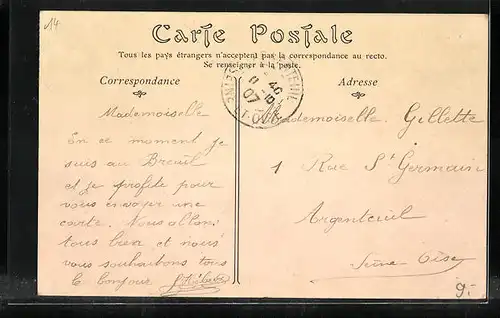 14
Carte Postale
Tous les pays étrangers n'acceptent pas la correspondance au recto.
Se renseigner à la poste.
Correspondance
Adresse
Mademoiselle
En ce moment je
suis au Breuil
et je profite pour
vous envoyer une
carte. Nous allons
tous bien et nous
vous souhaitons tous
le bonjour
Mademoiselle Gillette
1 Rue St Germain
Argenteuil
Seine Oise
9.-